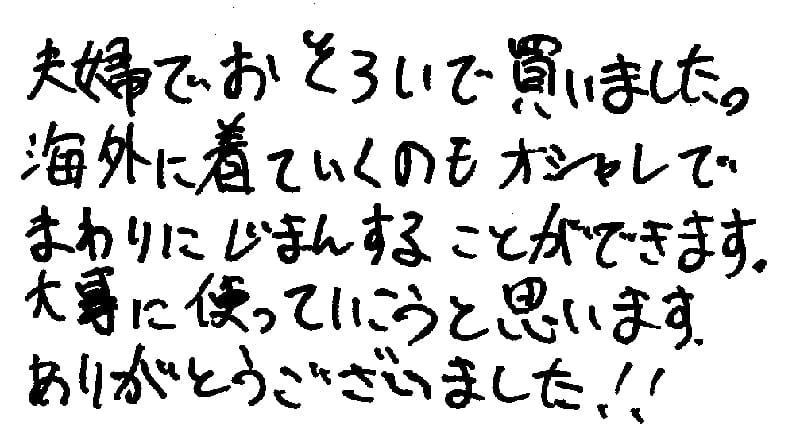 夫婦でおそろいで買いました。
海外に着ていくのもオシャレで
まわりにじまんすることができます。
大事に使っていこうと思います.
ありがとうございました!!